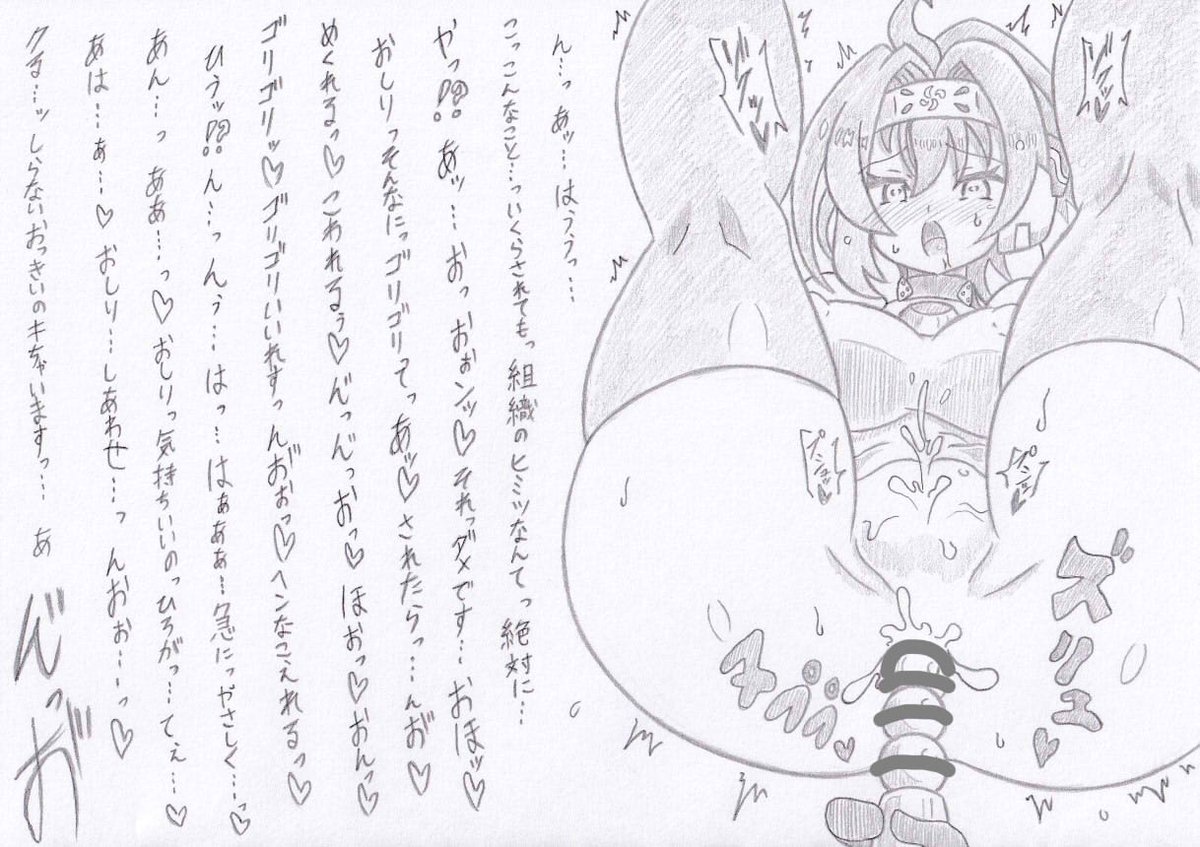 ん…っ あッ… はううっ…
こっこんなこと…っいくらされてもっ 組織のヒミツなんてっ 絶対に…
やっ!?? あッ… おっ おォンッ♡それっダメです… おほッ♡
おしりっそんなにっゴリゴリってっ あッ♡されたらっ…んお゛♡
めくれるっ♡こわれるぅ♡ん゛っん゛っおっ♡ ほおっ♡おんっ♡
ゴリゴリッ♡ゴリゴリいいれすっんお゛ぉっ♡ヘンなこえれるっ♡
ひうッ!?? ん…っ んぅ… はっ… はぁぁぁ…急にっやさしく…っ♡
あん…っ ああ…っ♡おしりっ気持ちいいのっひろがっ…てぇ…♡
あは…ぁ…♡おしり…しあわせ…っ んおぉ…っ♡
クる…ッしらないおっきいのキちゃいますっ… あ
ん゛っお゛
ズリュ
ヂュププ